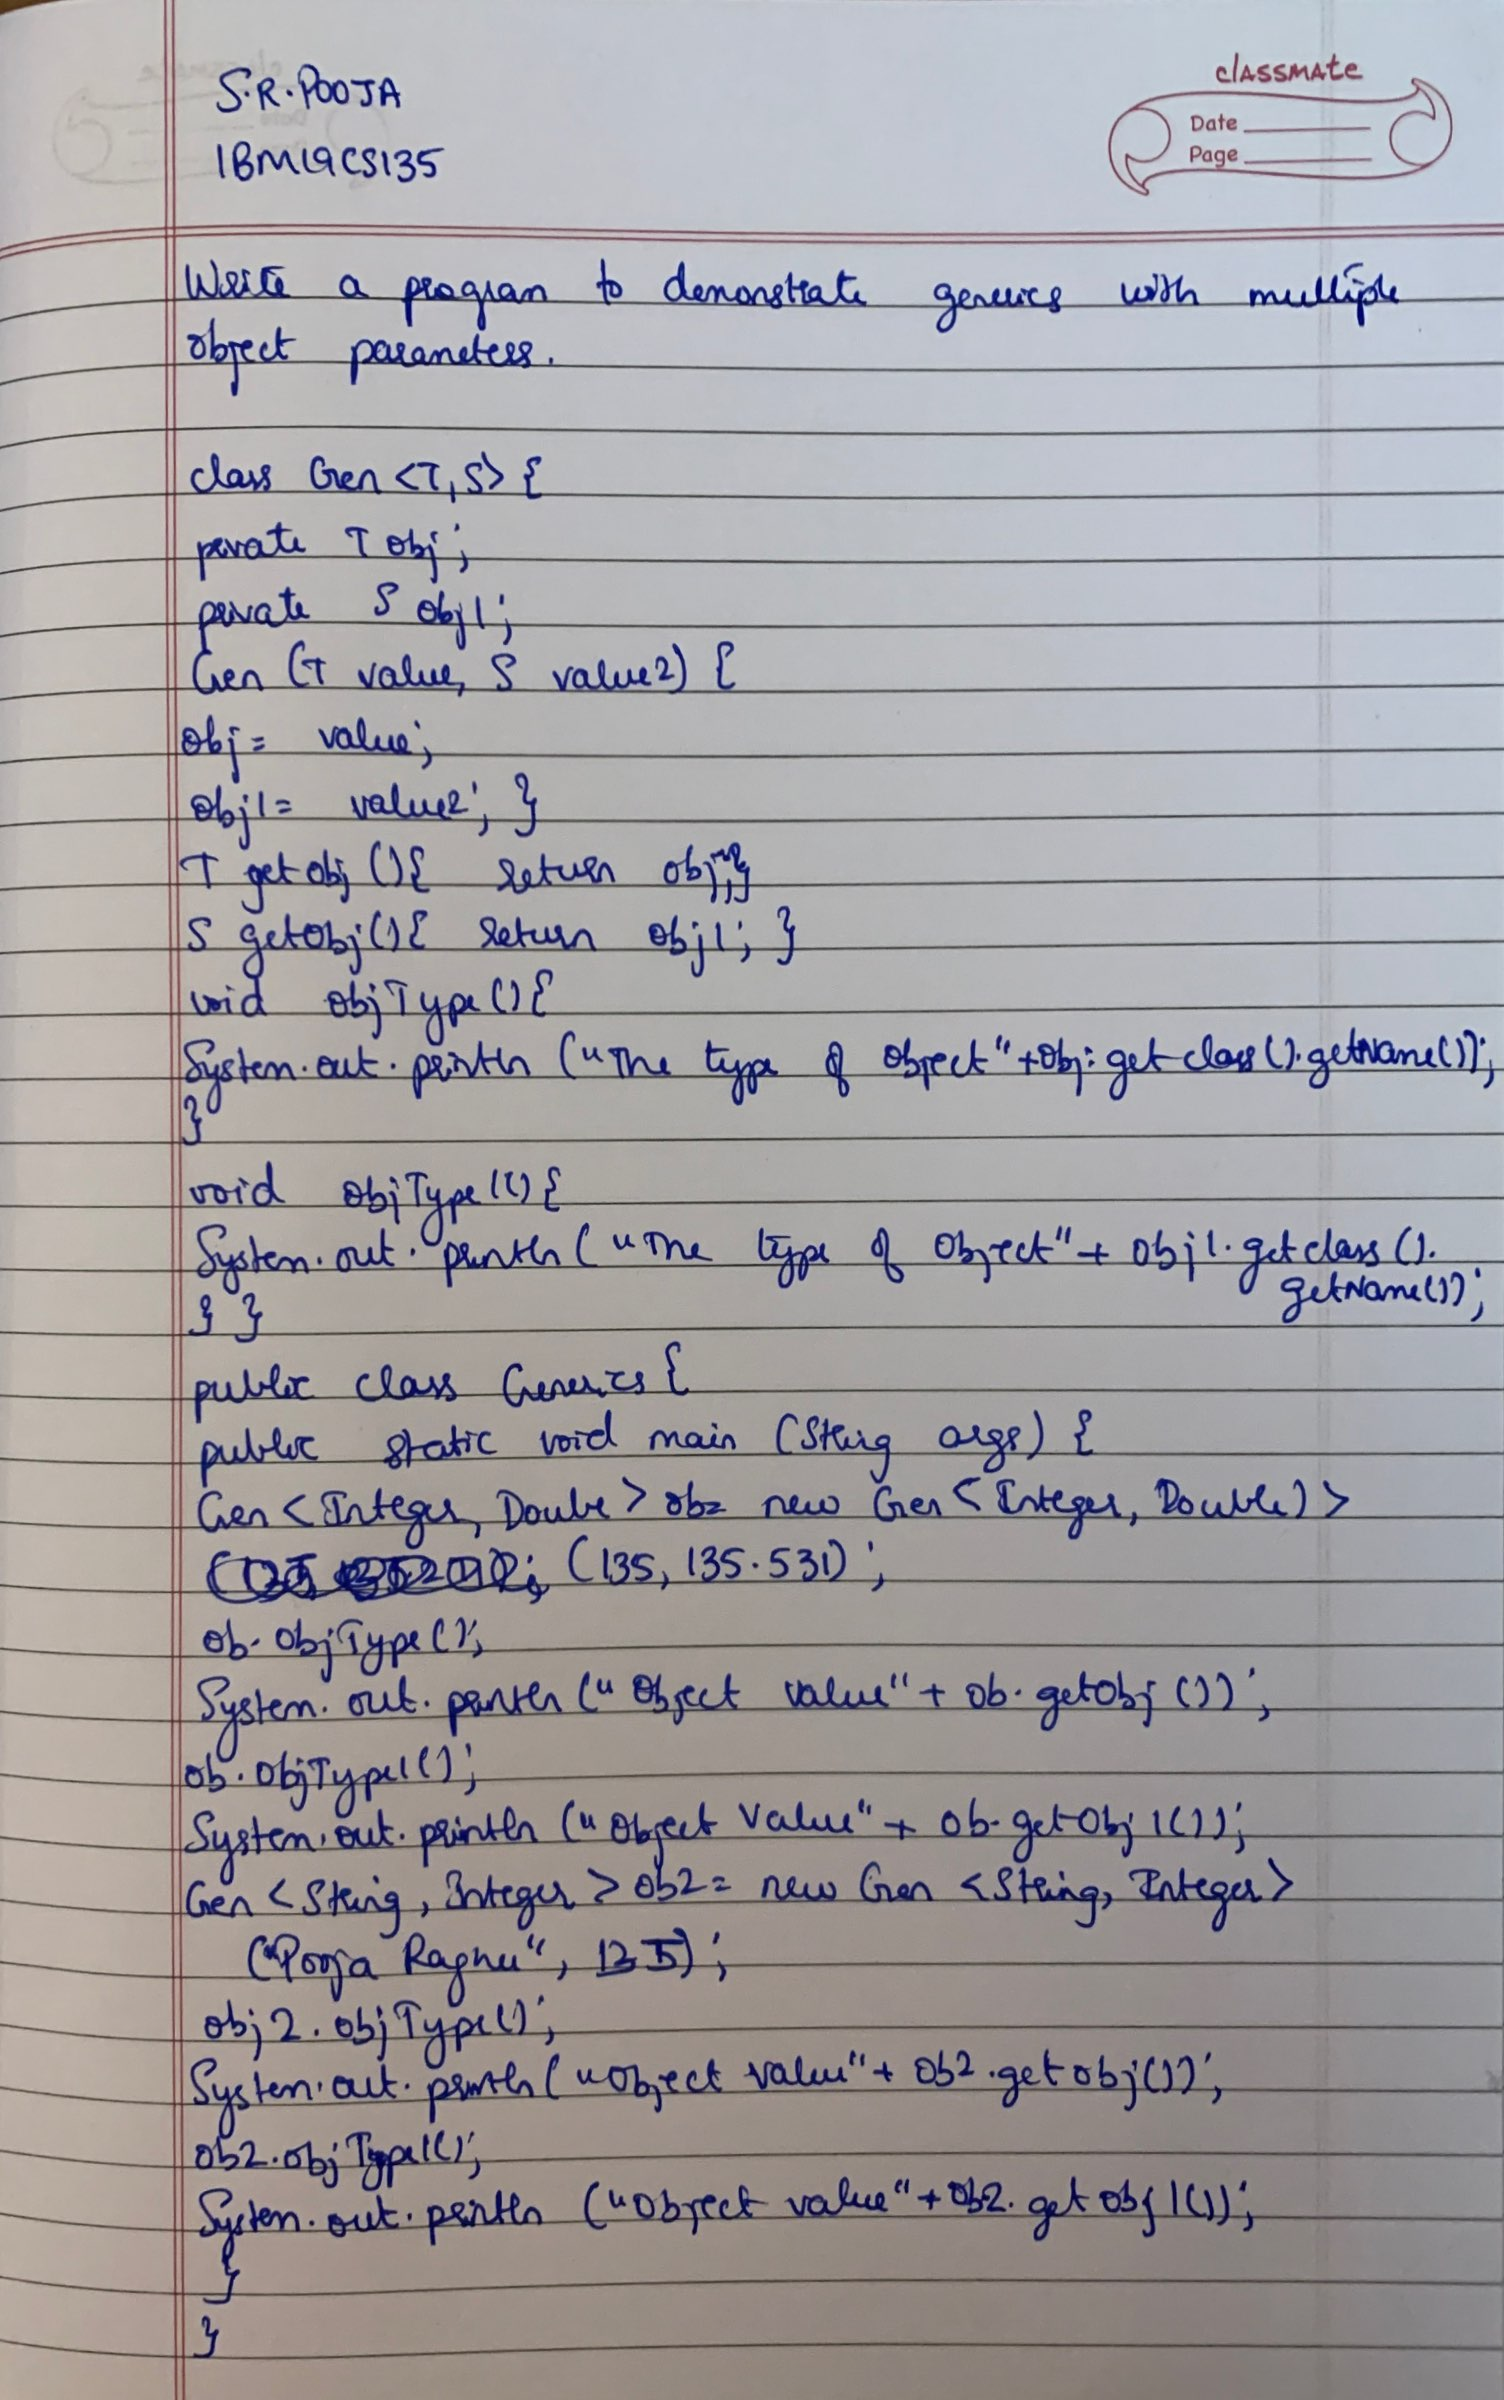 S.R.POOJA
classmate
Date
Page
1BM19CS135
Write a program to demonstrate generics with multiple
object parameters.
class Gen <T,S> {
private T obj;
private S obj1;
Gen (T value, S value2) {
obj= value;
obj1= value2; }
T getobj (){ return obj;}
S getobj(){ return obj1; }
void objType(){
System.out.println ("The type of object"+obj.getclass().getName());
}
void objType1(){
System.out.println ("The type of object"+ obj1.getclass().
getName());
} }
public class Generics {
public static void main (String args) {
Gen <Integer, Double> ob= new Gen <Integer, Double)>
(135, 135.531);
ob.objType();
System.out.println ("Object value"+ ob.getobj());
ob.objType1();
System.out.println ("Object Value"+ ob.getobj1());
Gen <String, Integer> ob2= new Gen <String, Integer>
("Pooja Raghu", 135);
obj2.objType();
System.out.println ("Object value"+ ob2.getobj());
ob2.objType1();
System.out.println ("Object value"+ob2.getobj1());
}
}